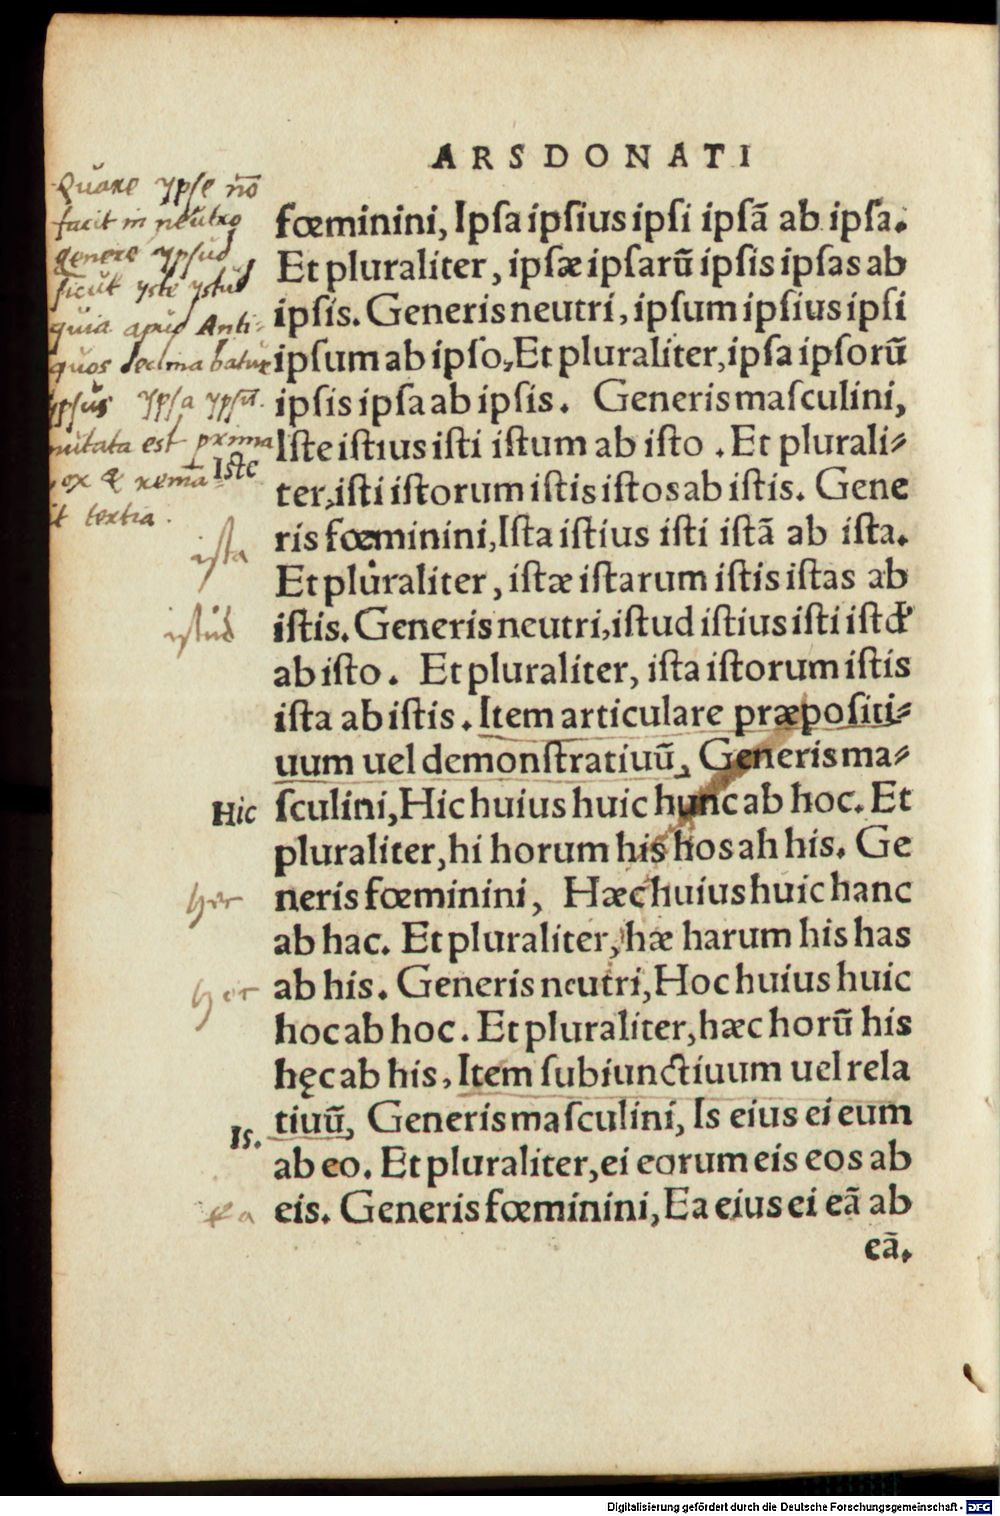 ARS DONATI
Quare ypse nō
facit in neutro
genere ypsud
sicut yste ystud
quia apud Anti-
quos declinabatur
ypsus ypsa ypsū.
mutata est prima
ox & rema
it tertia.
Iste
ista
istud
Hic
hec
hoc
Is.
ea
fœminini, Ipſa ipſius ipſi ipſā ab ipſa.
Et pluraliter, ipſæ ipſarū ipſis ipſas ab
ipſis. Generis neutri, ipſum ipſius ipſi
ipſum ab ipſo, Et pluraliter, ipſa ipſorū
ipſis ipſa ab ipſis. Generis maſculini,
Iſte iſtius iſti iſtum ab iſto . Et plurali-
ter, iſti iſtorum iſtis iſtos ab iſtis. Gene
ris fœminini, Iſta iſtius iſti iſtā ab iſta.
Et pluraliter, iſtæ iſtarum iſtis iſtas ab
iſtis. Generis neutri, iſtud iſtius iſti iſtđ
ab iſto. Et pluraliter, iſta iſtorum iſtis
iſta ab iſtis. Item articulare præpoſiti-
uum uel demonſtratiuū, Generis ma-
ſculini, Hic huius huic hunc ab hoc. Et
pluraliter, hi horum his hos ah his. Ge
neris fœminini, Hæc huius huic hanc
ab hac. Et pluraliter, hæ harum his has
ab his. Generis neutri, Hoc huius huic
hoc ab hoc. Et pluraliter, hæc horū his
hęc ab his, Item ſubiunctiuum uel rela
tiuū, Generis maſculini, Is eius ei eum
ab eo. Et pluraliter, ei eorum eis eos ab
eis. Generis fœminini, Ea eius ei eā ab
eā.
Digitalisierung gefördert durch die Deutsche Forschungsgemeinschaft - DFG